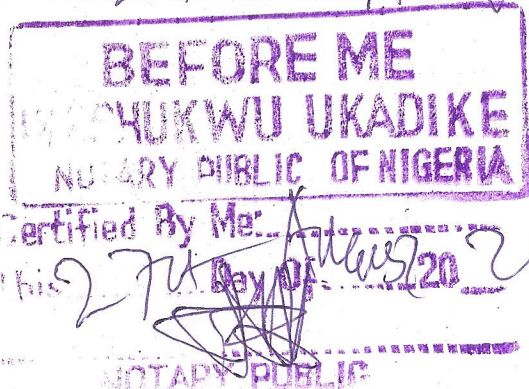 BEFORE ME
UKADIKE
NOTARY PUBLIC OF NIGERIA
Certified By Me:
This 27th Day Of: August 20 2
NOTARY PUBLIC